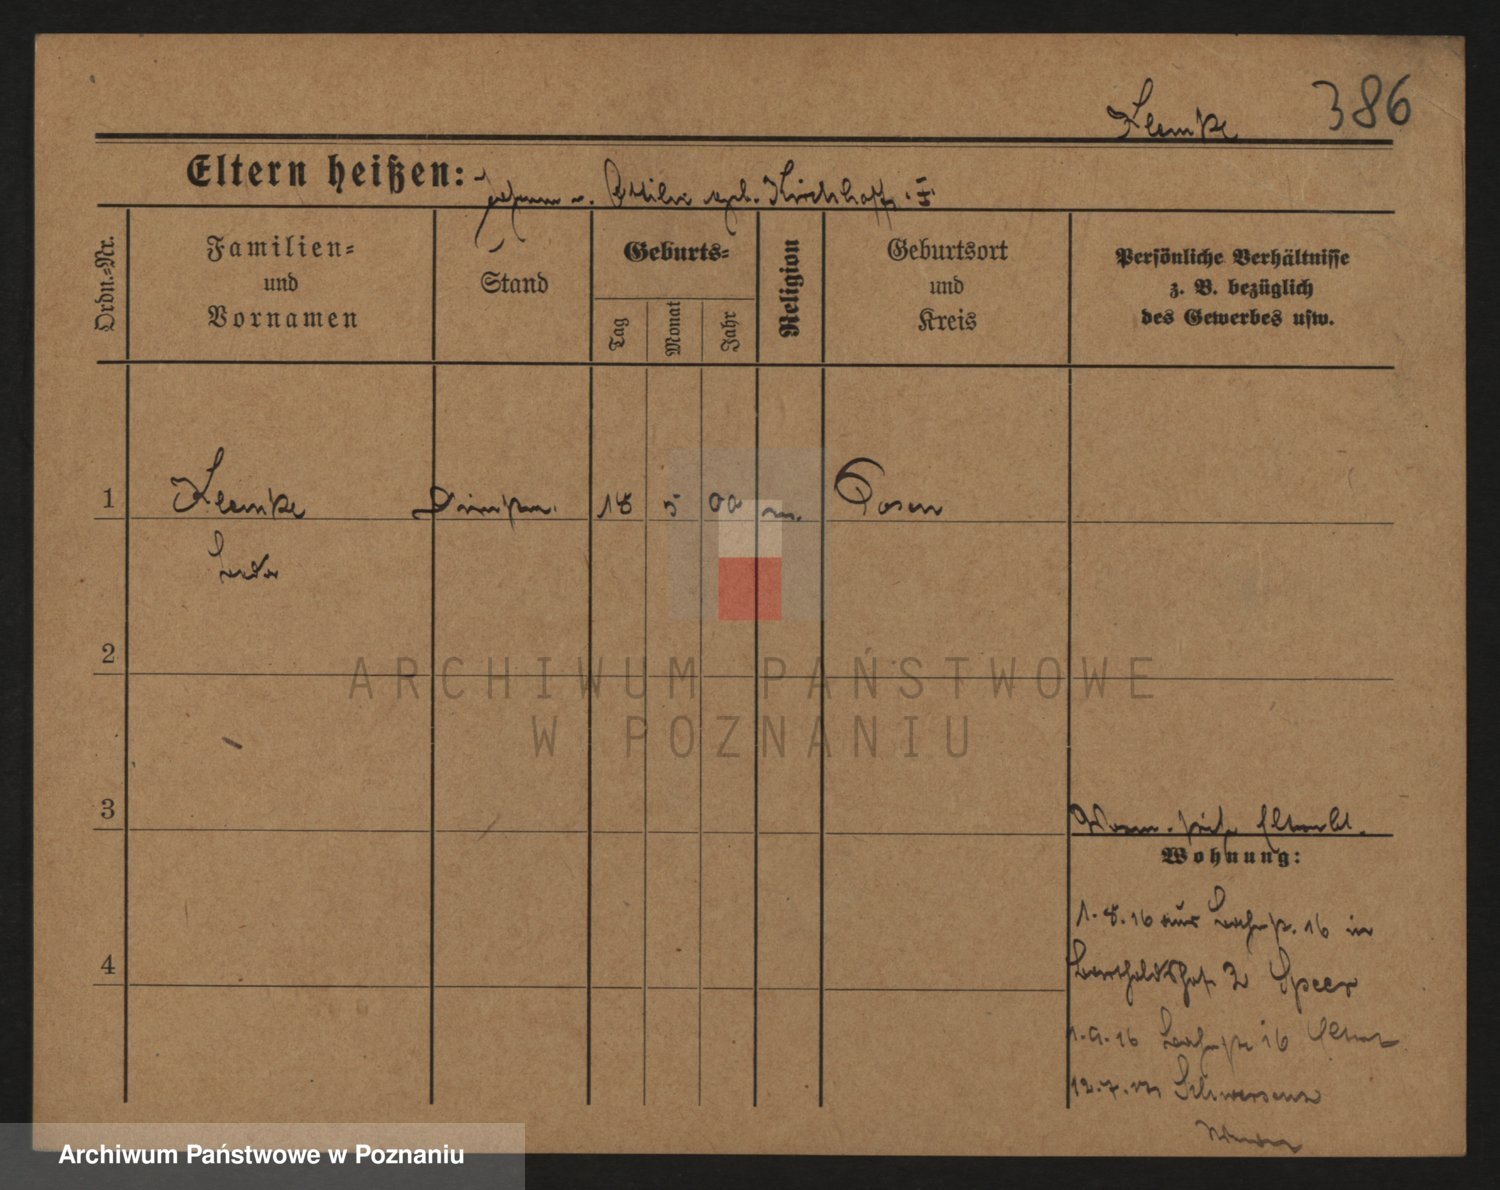 386
Klemke
Eltern heißen: Johann u. Ottilie geb. Kirchhoff.
Ordn.=Nr.
Familien=
und
Vornamen
Stand
Geburts=
Tag
Monat
Jahr
Religion
Geburtsort
und
Kreis
Persönliche Verhältnisse
z. B. bezüglich
des Gewerbes usw.
1
Klemke
18
5
00
Posen
2
3
Wohnung:
1.8.16 aus 16 in
2 Speer
4
1.9.16 16
Schwersenz
ARCHIWUM PAŃSTWOWE
W POZNANIU
Archiwum Państwowe w Poznaniu